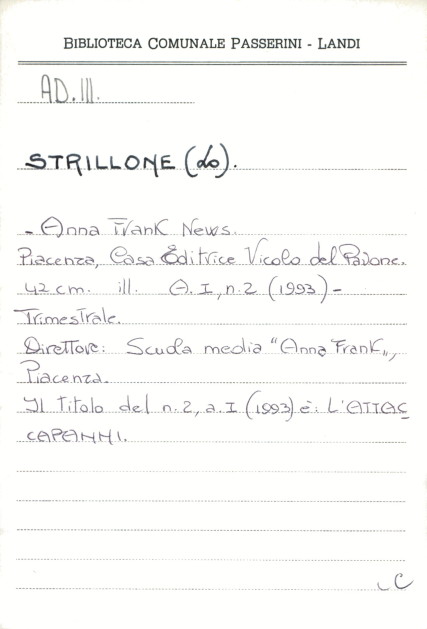 BIBLIOTECA COMUNALE PASSERINI - LANDI
AD.III.
STRILLONE (Lo).
- Anna Frank News.
Piacenza, Casa Editrice Vicolo del Pavone.
42 cm. ill. A. I, n. 2 (1993) -
Trimestrale.
Direttore: Scuola media "Anna Frank",
Piacenza.
Il titolo del n. 2, a. I (1993) è: L'ATTAC
CAPANNI.